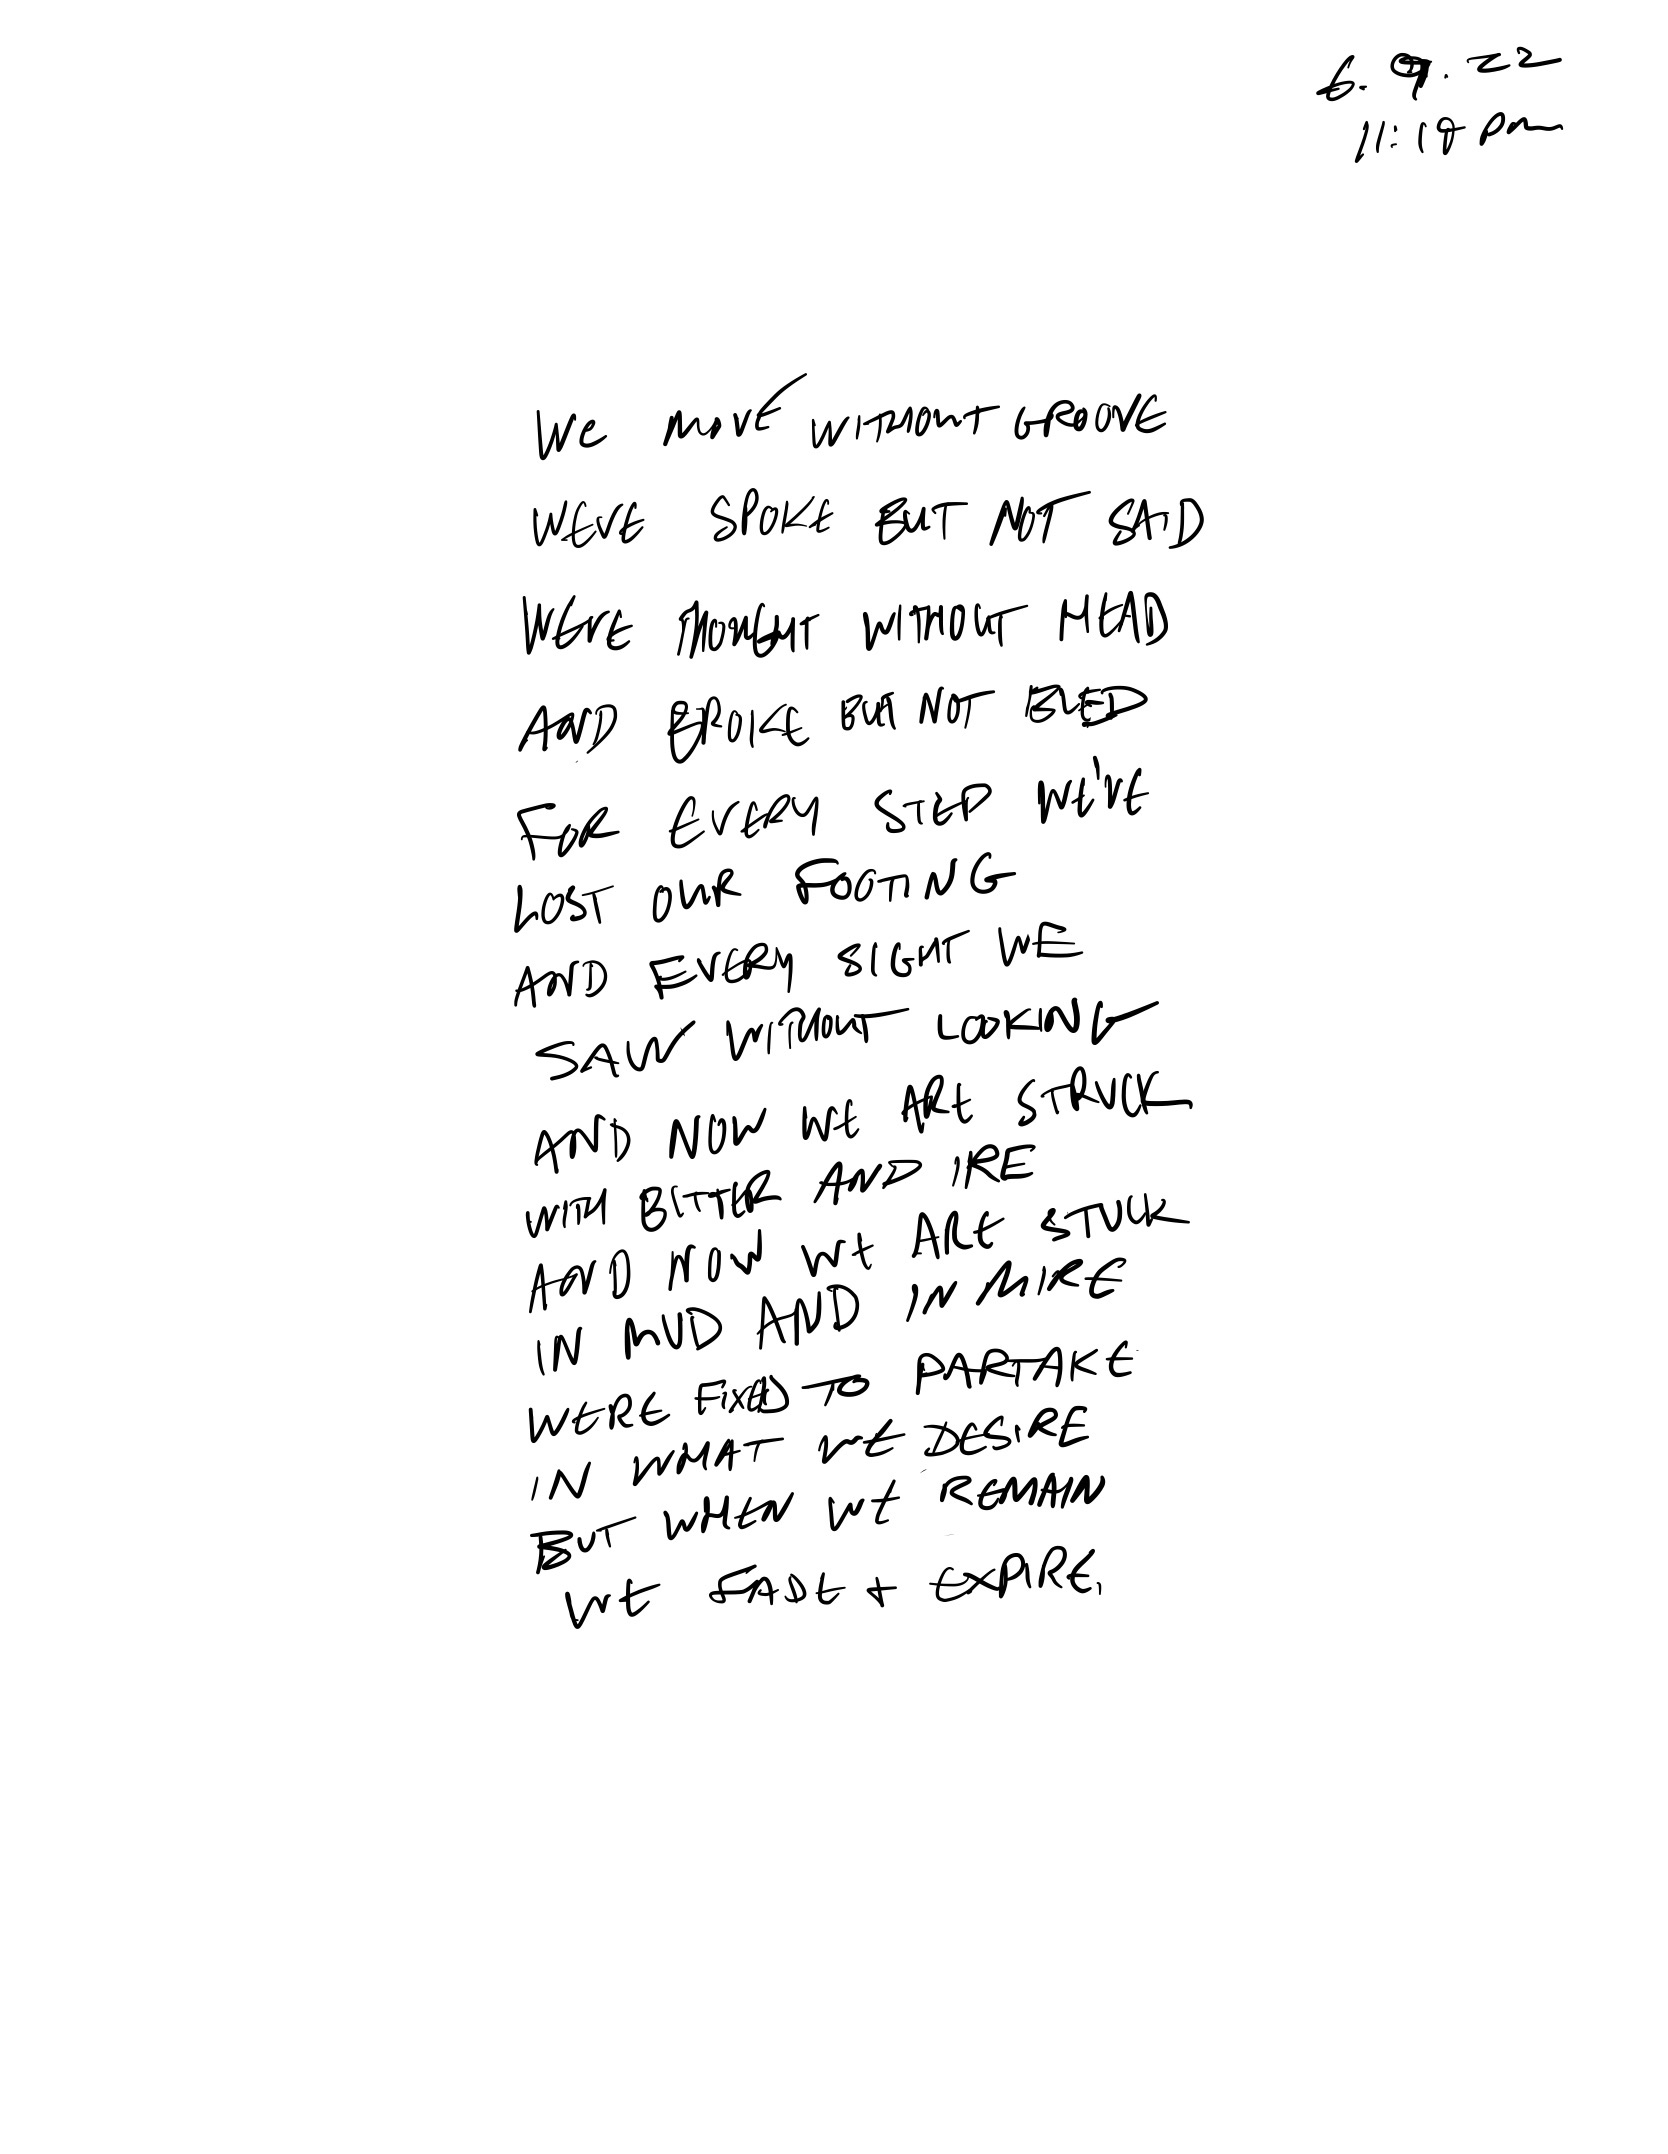 6.9.22
11:18 pm
We MOVE WITHOUT GROOVE
WEVE SPOKE BUT NOT SAID
WEVE THOUGHT WITHOUT HEAD
AND BROKE BUT NOT BLED
FOR EVERY STEP WE'VE
LOST OUR FOOTING
AND EVERY SIGHT WE
SAW WITHOUT LOOKING
AND NOW WE ARE STRUCK
WITH BITTER AND IRE
AND NOW WE ARE STUCK
IN MUD AND IN MIRE
WERE FIXED TO PARTAKE
IN WHAT WE DESIRE
BUT WHEN WE REMAIN
WE FADE + EXPIRE.